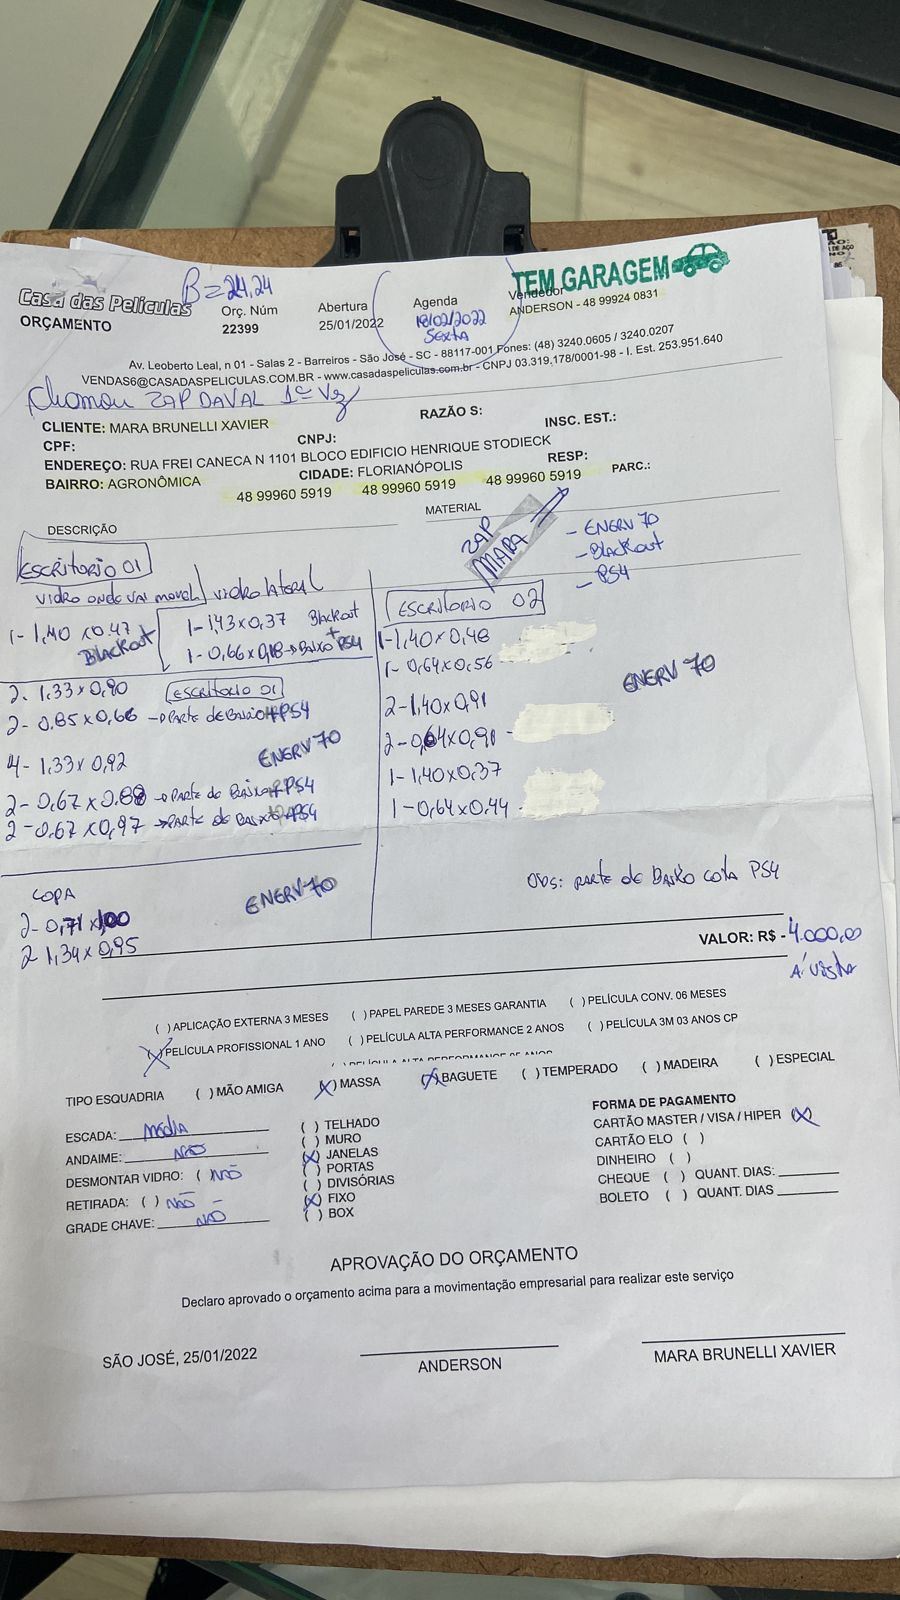 B = 24,24
TEM GARAGEM
Casa das Películas
ORÇAMENTO
Orç. Núm
22399
Abertura
25/01/2022
Agenda
18/02/2022
SEXTA
Vendedor
ANDERSON - 48 99924 0831
Av. Leoberto Leal, n 01 - Salas 2 - Barreiros - São José - SC - 88117-001 Fones: (48) 3240.0605 / 3240.0207
VENDAS6@CASADASPELICULAS.COM.BR - www.casadaspeliculas.com.br - CNPJ 03.319.178/0001-98 - I. Est. 253.951.640
Chamou ZAP DAVAL 1ª Vez
CLIENTE: MARA BRUNELLI XAVIER
RAZÃO S:
INSC. EST.:
CPF:
CNPJ:
ENDEREÇO: RUA FREI CANECA N 1101 BLOCO EDIFICIO HENRIQUE STODIECK
BAIRRO: AGRONÔMICA
CIDADE: FLORIANÓPOLIS
RESP:
PARC.:
48 99960 5919 48 99960 5919 48 99960 5919
DESCRIÇÃO
MATERIAL
ZAP
MARA
- ENERV 70
- BlackOut
- PS4
ESCRITORIO 01
VIDRO ONDE VAI MOVEL
VIDRO LATERAL
1- 1,40 x 0.47
BlackOut
1- 1,43 x 0,37 BlackOut
+
1- 0,66 x 0,18 → BAIXO PS4
2. 1.33 x 0,90 ESCRITORIO 01
2- 0.85 x 0,66 → PARTE DE BAIXO + PS4
4- 1.33 x 0,92
ENERV 70
2- 0,67 x 0.88 → PARTE de BAIXO + PS4
2- 0.67 x 0,97 → PARTE de BAIXO + PS4
COPA
ENERV 70
2- 0,71 x 1,00
2 1,34 x 0,95
ESCRITORIO 02
1- 1,40 x 0,48
1- 0,64 x 0,56
ENERV 70
2- 1,40 x 0,91
2- 0,64 x 0,91 -
1- 1,40 x 0,37
1- 0,64 x 0.44 -
Obs: PARTE de BAIXO COM PS4
VALOR: R$ - 4.000,00
A'vista
( ) APLICAÇÃO EXTERNA 3 MESES ( ) PAPEL PAREDE 3 MESES GARANTIA ( ) PELÍCULA CONV. 06 MESES
(X) PELÍCULA PROFISSIONAL 1 ANO ( ) PELÍCULA ALTA PERFORMANCE 2 ANOS ( ) PELÍCULA 3M 03 ANOS CP
( ) PELÍCULA ALTA PERFORMANCE 05 ANOS
TIPO ESQUADRIA ( ) MÃO AMIGA (X) MASSA (X) BAGUETE ( ) TEMPERADO ( ) MADEIRA ( ) ESPECIAL
ESCADA: Média
ANDAIME: NÃO
DESMONTAR VIDRO: ( NÃO
RETIRADA: ( ) NÃO -
GRADE CHAVE: NÃO
( ) TELHADO
( ) MURO
(X) JANELAS
( ) PORTAS
( ) DIVISÓRIAS
(X) FIXO
( ) BOX
FORMA DE PAGAMENTO
CARTÃO MASTER / VISA / HIPER (X)
CARTÃO ELO ( )
DINHEIRO ( )
CHEQUE ( ) QUANT. DIAS:
BOLETO ( ) QUANT. DIAS
APROVAÇÃO DO ORÇAMENTO
Declaro aprovado o orçamento acima para a movimentação empresarial para realizar este serviço
SÃO JOSÉ, 25/01/2022
ANDERSON
MARA BRUNELLI XAVIER